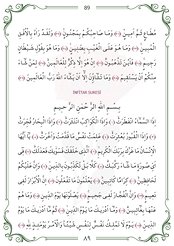 89
مُطَاعٍ ثَمَّ أَمِينٍ وَمَا صَاحِبُكُمْ بِمَجْنُونٍ وَلَقَدْ رَآهُ بِالْأُفُقِ
الْمُبِينِ وَمَا هُوَ عَلَى الْغَيْبِ بِضَنِينٍ وَمَا هُوَ بِقَوْلِ شَيْطَانٍ
رَجِيمٍ فَأَيْنَ تَذْهَبُونَ إِنْ هُوَ إِلَّا ذِكْرٌ لِلْعَالَمِينَ لِمَنْ شَاءَ
مِنْكُمْ أَنْ يَسْتَقِيمَ وَمَا تَشَاؤُنَ إِلَّا أَنْ يَشَاءَ اللَّهُ رَبُّ الْعَالَمِينَ
İNFİTAR SURESİ
بِسْمِ اللَّهِ الرَّحْمَنِ الرَّحِيمِ
إِذَا السَّمَاءُ انْفَطَرَتْ وَإِذَا الْكَوَاكِبُ انْتَثَرَتْ وَإِذَا الْبِحَارُ فُجِّرَتْ
وَإِذَا الْقُبُورُ بُعْثِرَتْ عَلِمَتْ نَفْسٌ مَا قَدَّمَتْ وَأَخَّرَتْ يَا أَيُّهَا
الْإِنْسَانُ مَا غَرَّكَ بِرَبِّكَ الْكَرِيمِ الَّذِي خَلَقَكَ فَسَوَّيكَ فَعَدَلَكَ
فِي أَيِّ صُورَةٍ مَا شَاءَ رَكَّبَكَ كَلَّا بَلْ تُكَذِّبُونَ بِالدِّينِ وَإِنَّ عَلَيْكُمْ
لَحَافِظِينَ كِرَامًا كَاتِبِينَ يَعْلَمُونَ مَا تَفْعَلُونَ إِنَّ الْأَبْرَارَ لَفِي
نَعِيمٍ وَإِنَّ الْفُجَّارَ لَفِي جَحِيمٍ يَصْلَوْنَهَا يَوْمَ الدِّينِ وَمَا هُمْ
عَنْهَا بِغَائِبِينَ وَمَا أَدْرَيكَ مَا يَوْمُ الدِّينِ ثُمَّ مَا أَدْرَيكَ مَا يَوْمُ
الدِّينِ يَوْمَ لَا تَمْلِكُ نَفْسٌ لِنَفْسٍ شَيْئًا وَالْأَمْرُ يَوْمَئِذٍ لِلَّهِ
٨٩